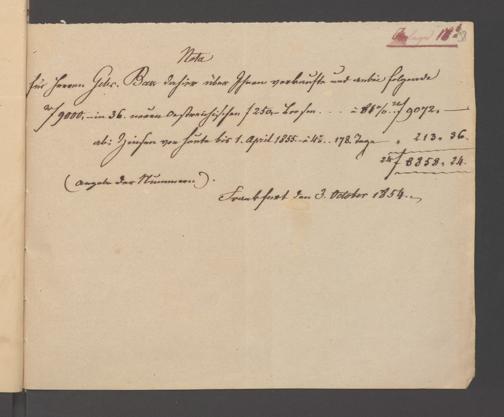 Nota
für Herren Gebr. Bxx dahier über Ihnen verkaufte und anbei folgende
f 9000,– in 36. neuen Oestreichischen f 250,– Loosen . . . . à 84% f 9072. –
ab: Zinsen von heute bis 1. April 1855 à 4%. . 178. Tage „ 213. 36.
f 8858. 24.
(Angabe der Nummern).
Frankfurt den 3. October 1854.